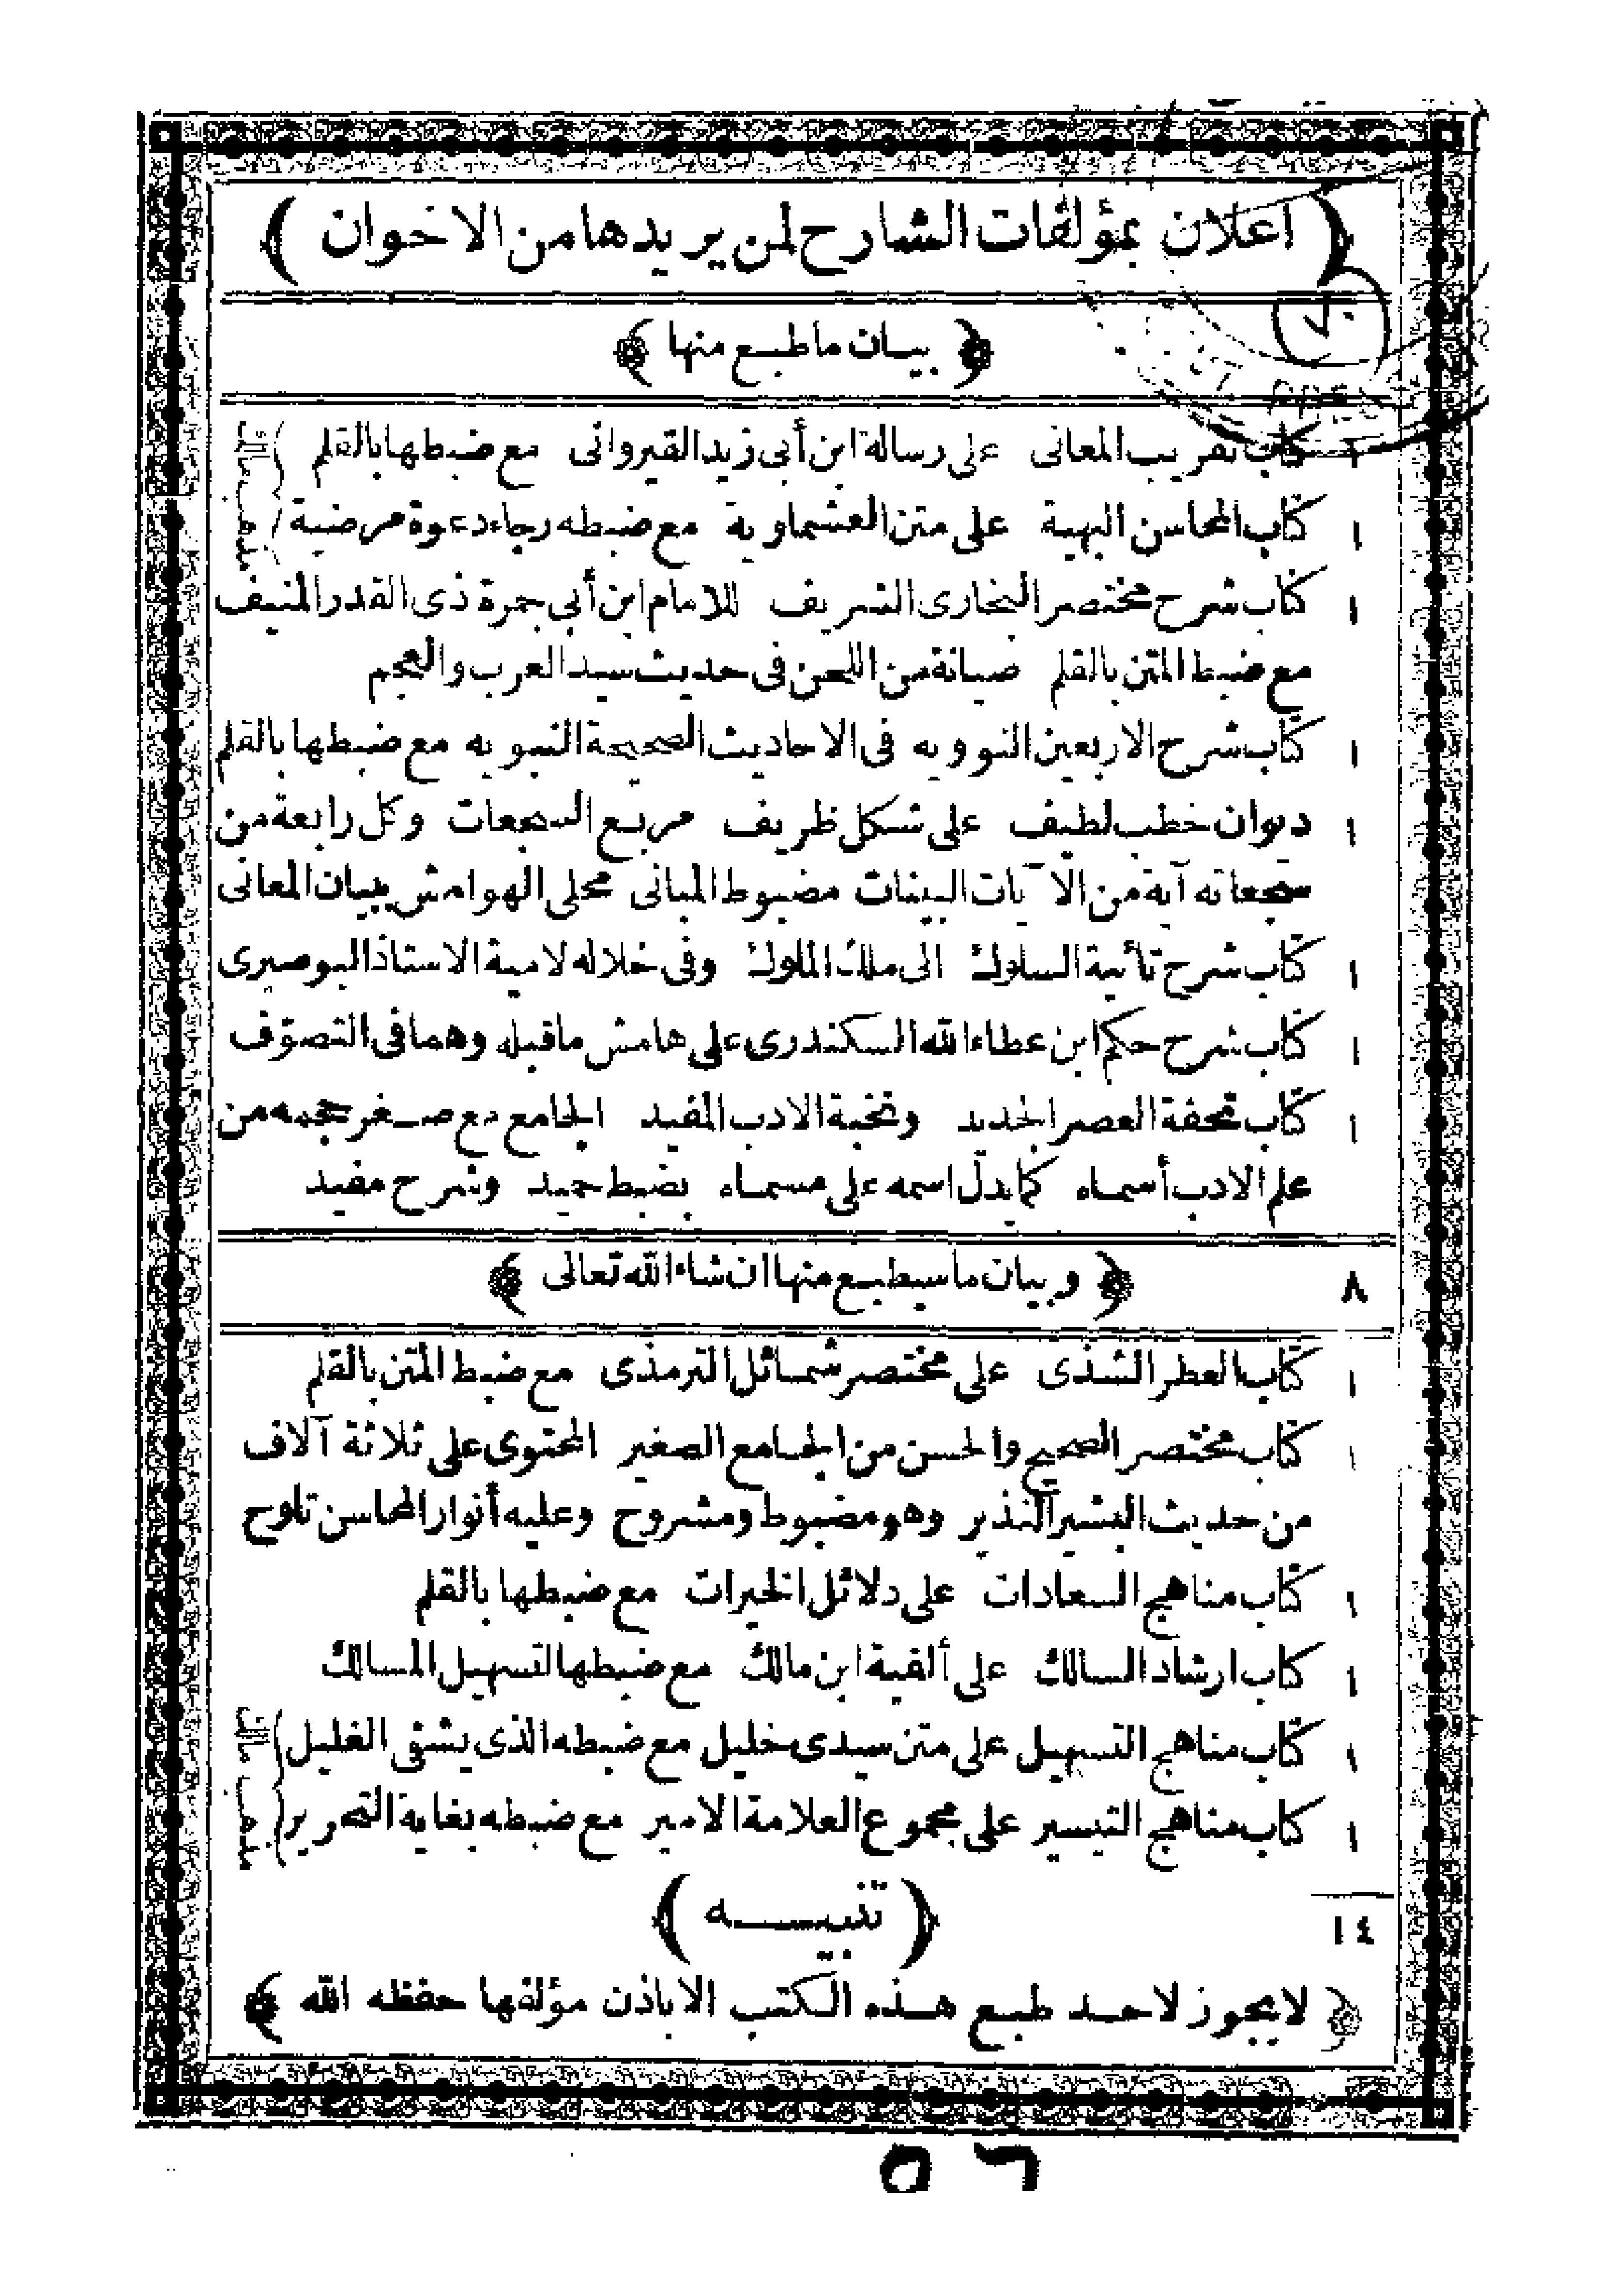 ( اعلان بمؤلفات الشارح لمن يريدها من الاخوان )
﴿ بيان ما طبع منها ﴾
١ كتاب تقريب المعانى على رسالة ابن أبى زيد القيروانى مع ضبطها بالقلم
١ كتاب المحاسن البهية على متن العشماوية مع ضبطه رجاء دعوة مرضية
مذهب مالك
١ كتاب شرح مختصر البخارى الشريف للامام ابن أبي جمرة ذى القدر المنيف
مع ضبط المتن بالقلم صيانة من اللحن فى حديث سيد العرب والعجم
١ كتاب شرح الاربعين النوويه فى الاحاديث الصحيحة النبويه مع ضبطها بالقلم
١ ديوان خطب لطيف على شكل ظريف مربع السجعات وكل رابعة من
سجعاته آية من الآيات البينات مضبوط المبانى محلى الهوامش ببيان المعانى
١ كتاب شرح تائية السلوك الى ملك الملوك وفى خلاله لامية الاستاذ البوصيرى
١ كتاب شرح حكم ابن عطاء الله السكندرى على هامش ما قبله وهما فى التصوّف
١ كتاب تحفة العصر الجديد ونخبة الادب المفيد الجامع مع صغر حجمه من
علم الادب أسماه كما يدلّ اسمه على مسماه بضبط جيد وشرح مفيد
٨ ﴿ وبيان ما سيطبع منها ان شاء الله تعالى ﴾
١ كتاب العطر الشذى على مختصر شمائل الترمذى مع ضبط المتن بالقلم
١ كتاب مختصر الصحيح والحسن من الجامع الصغير المحتوى على ثلاثة آلاف
من حديث البشير النذير وهو مضبوط ومشروح وعليه أنوار المحاسن تلوح
١ كتاب مناهج السعادات على دلائل الخيرات مع ضبطها بالقلم
١ كتاب ارشاد السالك على ألفية ابن مالك مع ضبطها لتسهيل المسالك
١ كتاب مناهج التسهيل على متن سيدى خليل مع ضبطه الذى يشفى الغليل
١ كتاب مناهج التيسير على مجموع العلامة الامير مع ضبطه بغاية التحرير
مذهب مالك
١٤
( تنبيـــه )
﴿ لا يجوز لاحد طبع هذه الكتب الا باذن مؤلفها حفظه الله ﴾